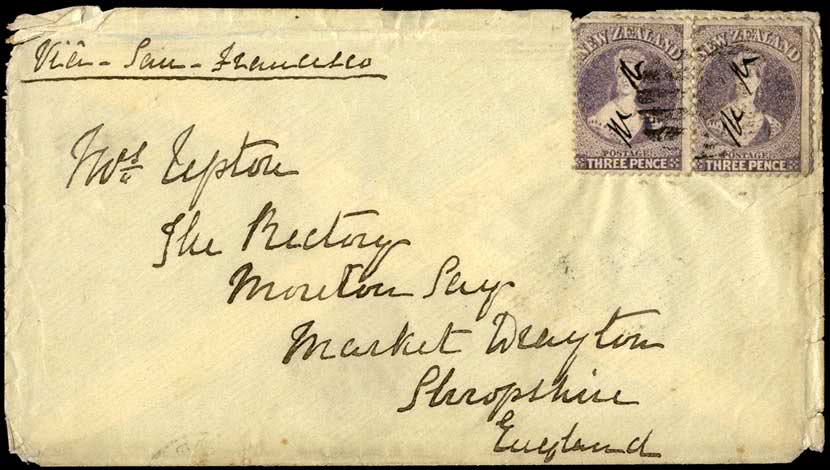 Viâ - San - Francisco
NEW ZEALAND
POSTAGE
THREE PENCE
NEW ZEALAND
POSTAGE
THREE PENCE
Mrs Upton
The Rectory
Moreton Say
Market Drayton
Shropshire
England